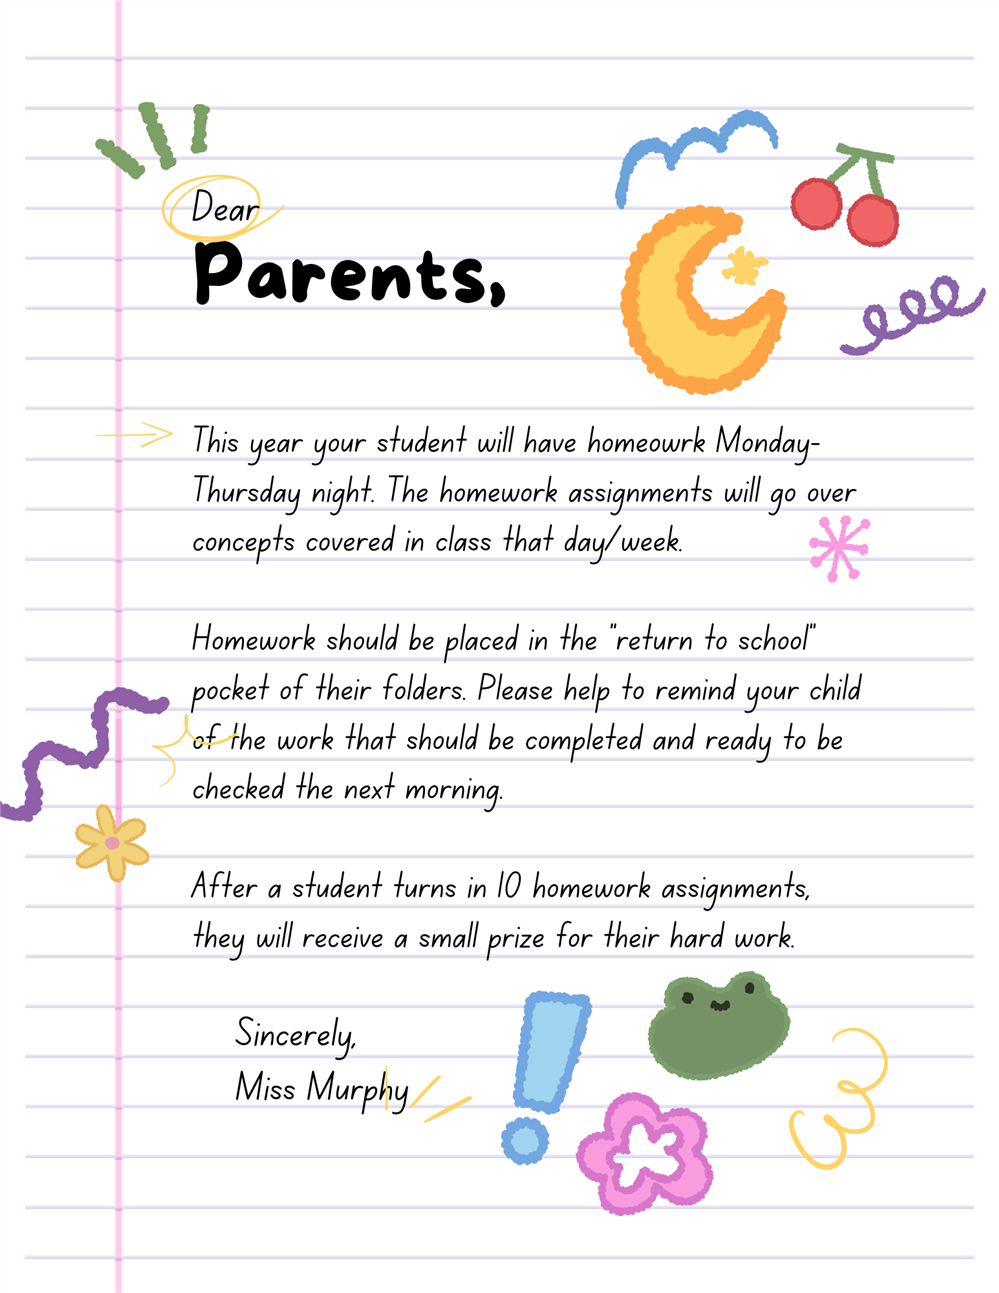 Dear
Parents,
This year your student will have homeowrk Monday-
Thursday night. The homework assignments will go over
concepts covered in class that day/week.
Homework should be placed in the "return to school"
pocket of their folders. Please help to remind your child
of the work that should be completed and ready to be
checked the next morning.
After a student turns in 10 homework assignments,
they will receive a small prize for their hard work.
Sincerely,
Miss Murphy